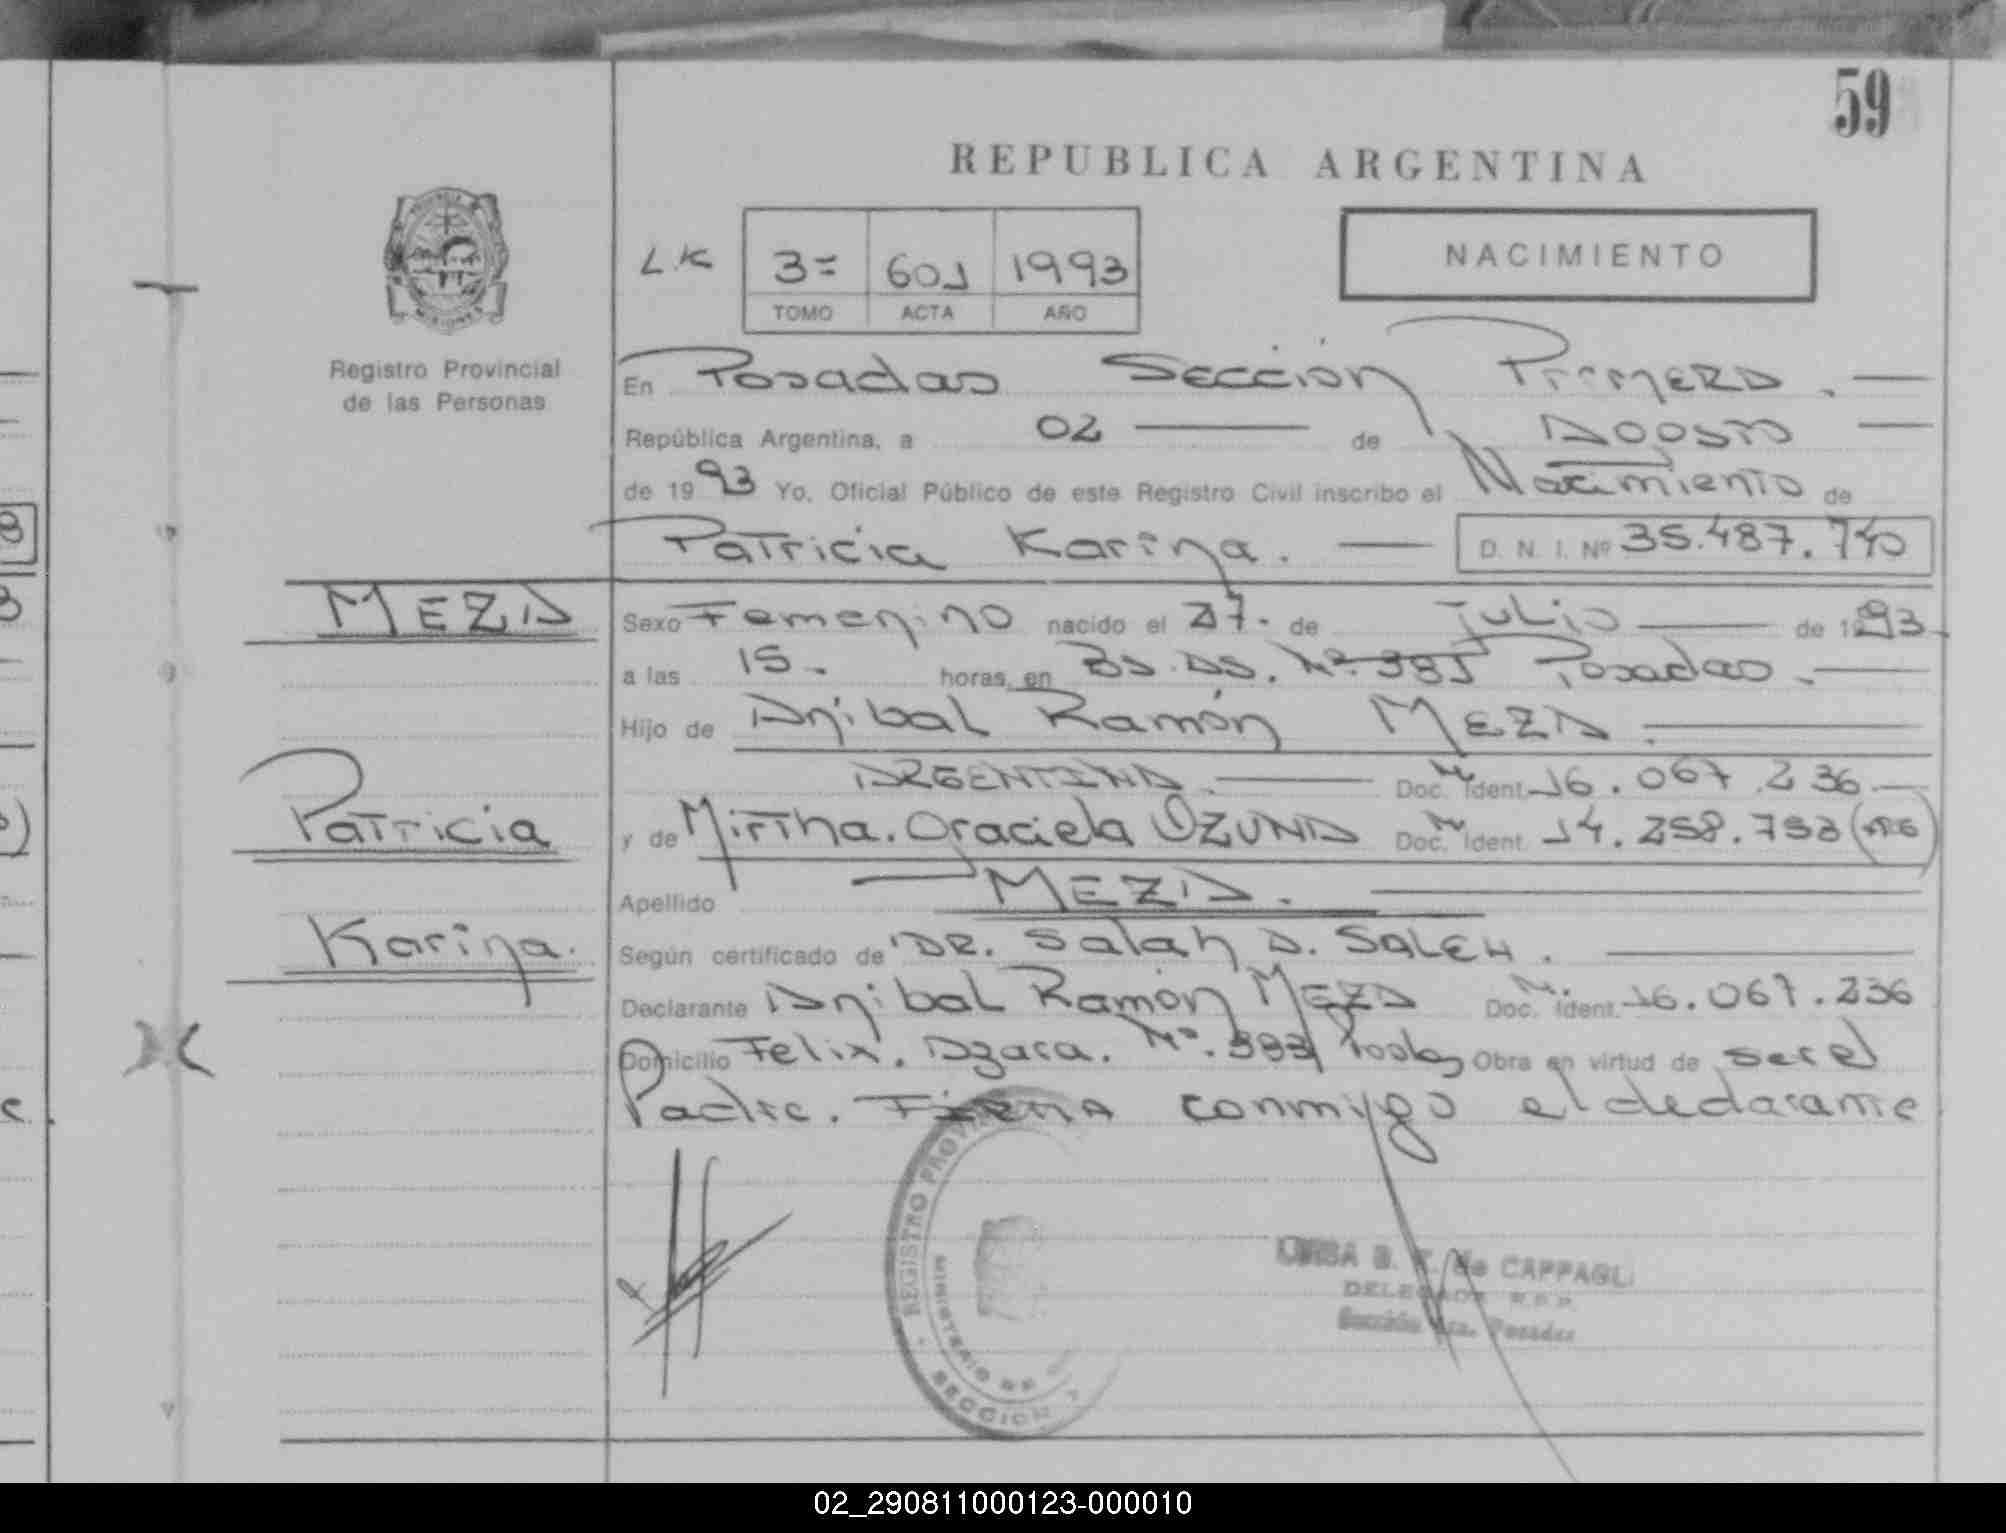 59
REPUBLICA ARGENTINA
L.K 3= 601 1993
TOMO ACTA AÑO
NACIMIENTO
MISIONES
Registro Provincial
de las Personas
En Posadas Sección Primera.
República Argentina, a 02 de Agosto
de 1993 Yo, Oficial Público de este Registro Civil inscribo el Nacimiento de
Patricia Karina. D. N. I. Nº 35.487.740
MEZA
Sexo Femenino nacido el 27. de Julio de 1993.
a las 15. horas, en Bs. As. Nº 385 Posadas.
Hijo de Anibal Ramón MEZA.
ARGENTINA. Doc. Ident. 16.067.236
Patricia
y de Mirtha. Graciela OZUNA Doc. Ident. 14.258.753
Apellido MEZA.
Karina.
Según certificado de DR. Salah A. SALEH.
Declarante Anibal Ramón MEZA Doc. Ident. 16.067.236
Domicilio Felix. Azara. Nº. 393 Posdas Obra en virtud de ser el
Padre. FIRMA conmigo el declarante
REGISTRO PROVIN
MINISTERIO DE
SECCION
B. de CAPPAGLI
DELEGADA R.P.P.
Sección 1ra. Posadas
02_290811000123-000010